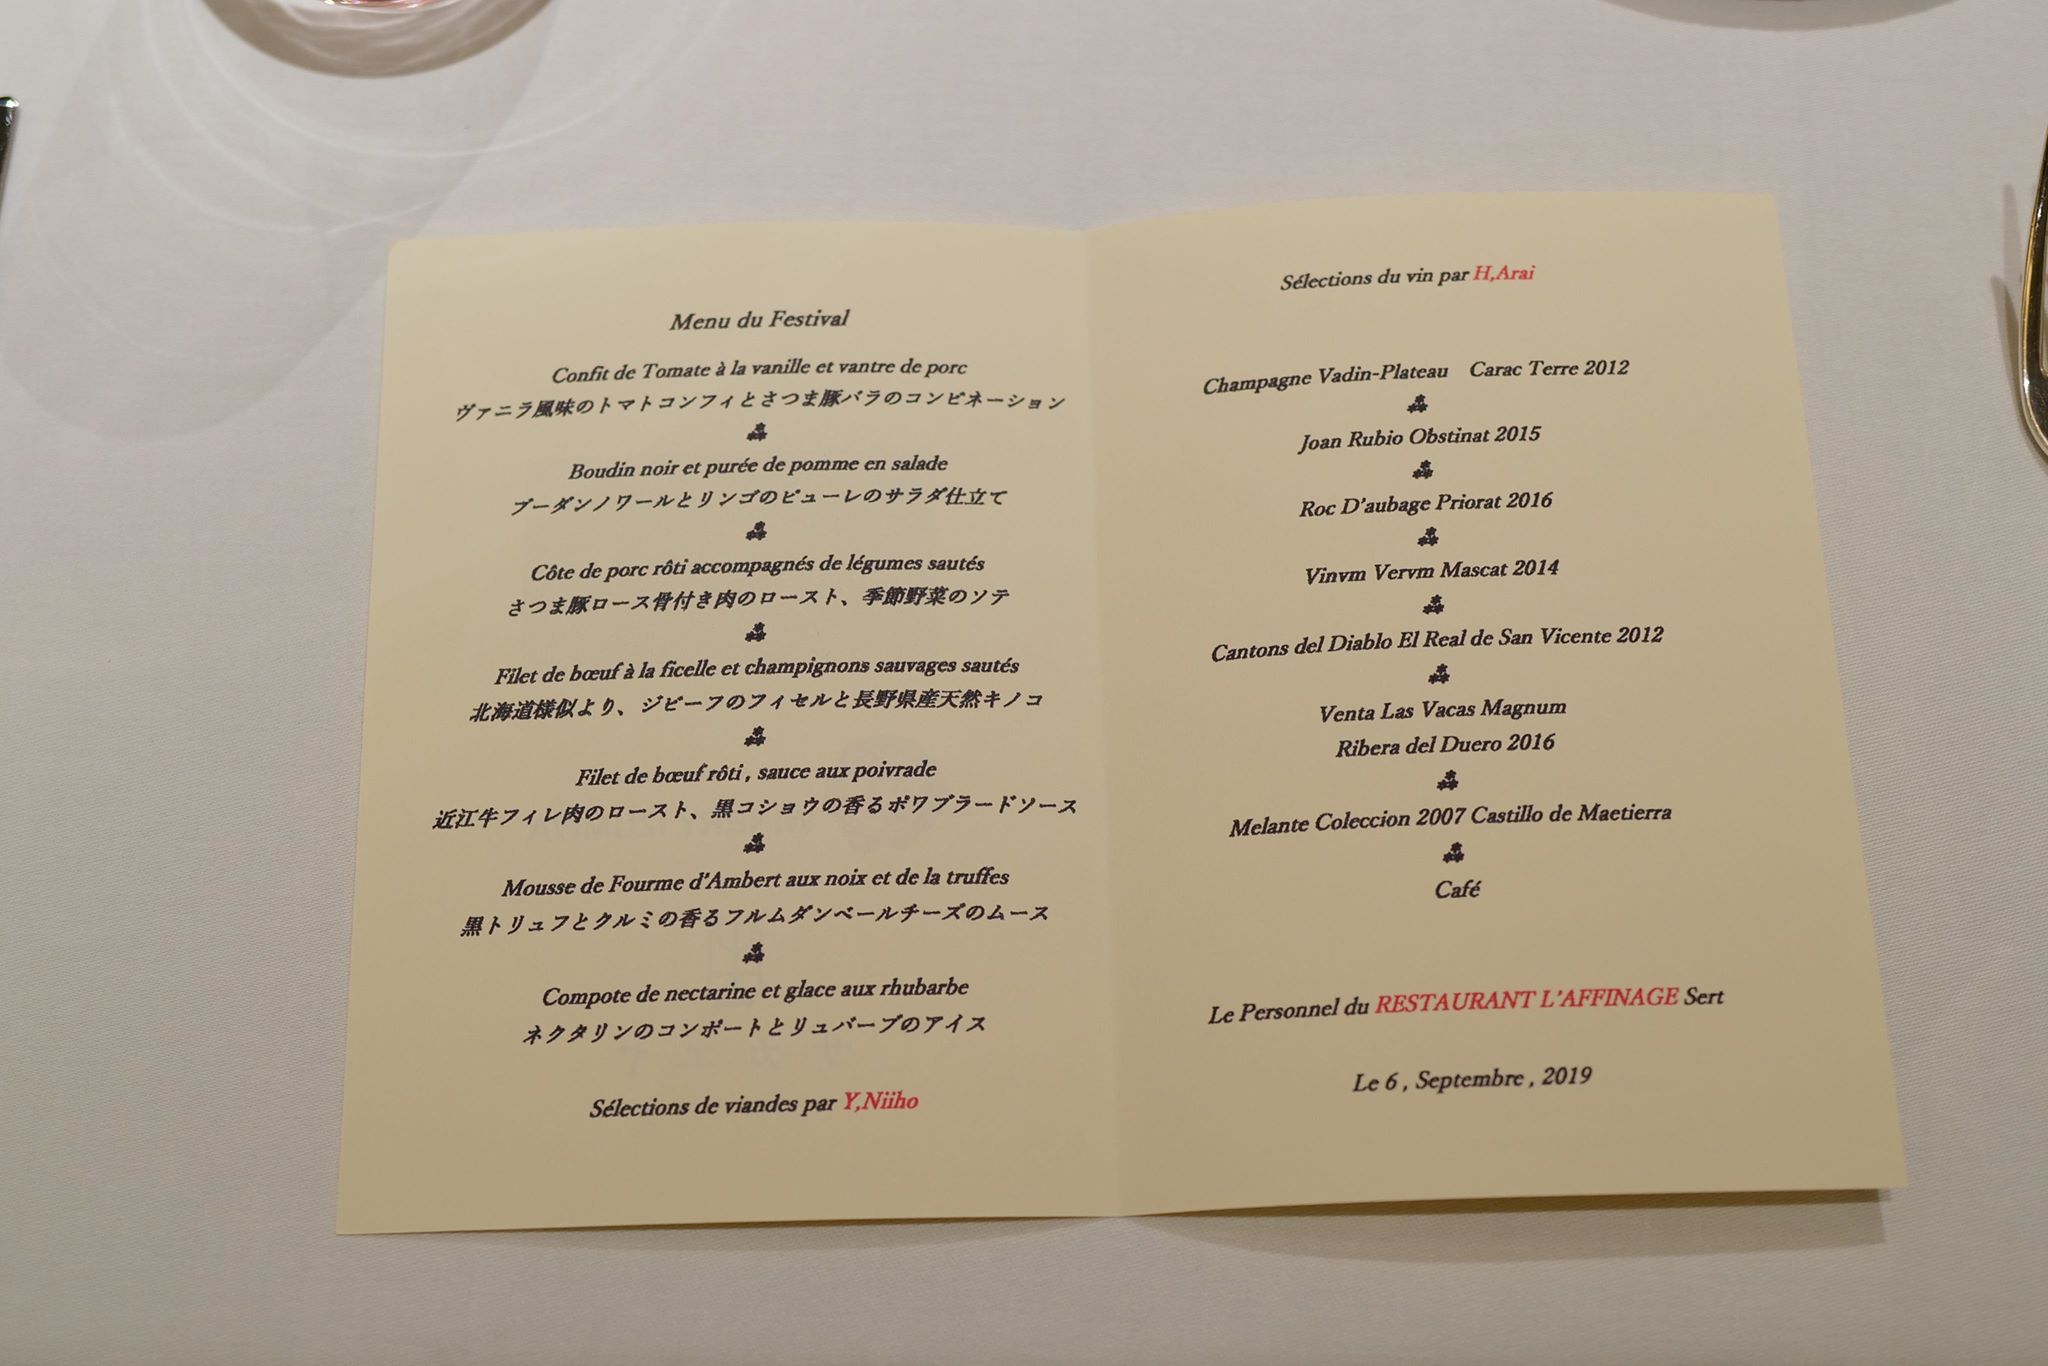 Menu du Festival
Confit de Tomate à la vanille et vantre de porc
ヴァニラ風味のトマトコンフィとさつま豚バラのコンビネーション
Boudin noir et purée de pomme en salade
ブーダンノワールとリンゴのピューレのサラダ仕立て
Côte de porc rôti accompagnés de légumes sautés
さつま豚ロース骨付き肉のロースト、季節野菜のソテ
Filet de bœuf à la ficelle et champignons sauvages sautés
北海道様似より、ジビーフのフィセルと長野県産天然キノコ
Filet de bœuf rôti , sauce aux poivrade
近江牛フィレ肉のロースト、黒コショウの香るポワブラードソース
Mousse de Fourme d'Ambert aux noix et de la truffes
黒トリュフとクルミの香るフルムダンベールチーズのムース
Compote de nectarine et glace aux rhubarbe
ネクタリンのコンポートとリュバーブのアイス
Sélections de viandes par Y,Niiho
Sélections du vin par H,Arai
Champagne Vadin-Plateau Carac Terre 2012
Joan Rubio Obstinat 2015
Roc D'aubage Priorat 2016
Vinvm Vervm Mascat 2014
Cantons del Diablo El Real de San Vicente 2012
Venta Las Vacas Magnum
Ribera del Duero 2016
Melante Coleccion 2007 Castillo de Maetierra
Café
Le Personnel du RESTAURANT L'AFFINAGE Sert
Le 6 , Septembre , 2019